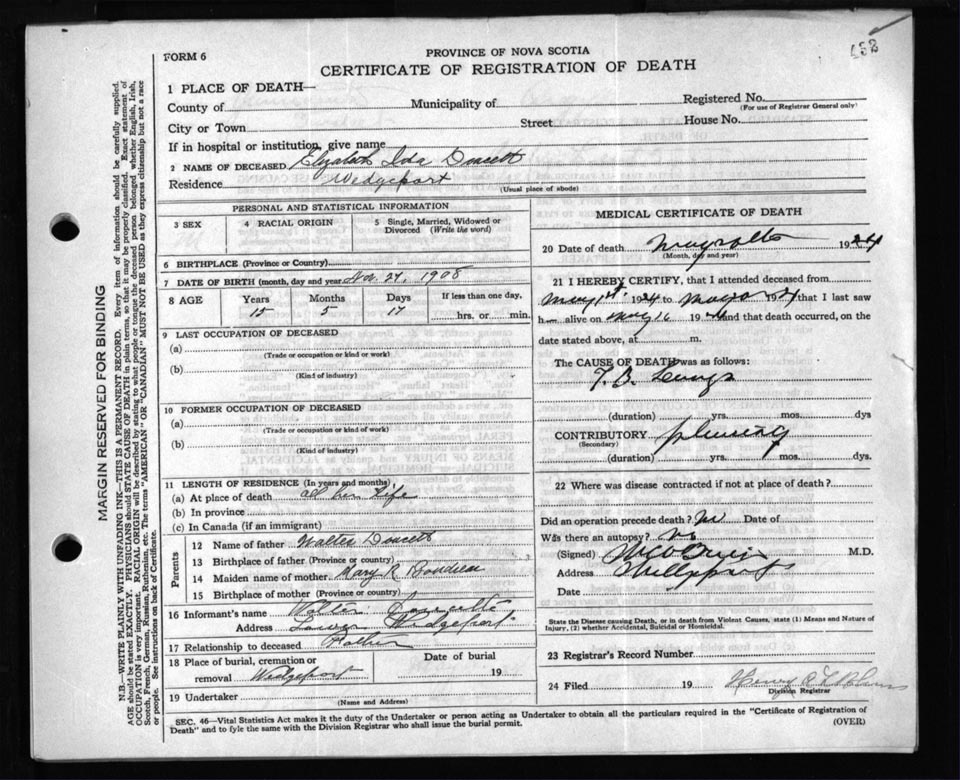 652
FORM 6
PROVINCE OF NOVA SCOTIA
CERTIFICATE OF REGISTRATION OF DEATH
1 PLACE OF DEATH—
County of
Municipality of
Registered No.
(For use of Registrar General only)
City or Town
Street
House No.
If in hospital or institution, give name
2 NAME OF DECEASED Elizabeth Ida Doucett
Residence Wedgeport
(Usual place of abode)
PERSONAL AND STATISTICAL INFORMATION
3 SEX
4 RACIAL ORIGIN
5 Single, Married, Widowed or Divorced (Write the word)
6 BIRTHPLACE (Province or Country)
7 DATE OF BIRTH (month, day and year) Nov. 27, 1908
8 AGE Years Months Days If less than one day,
15 5 17 hrs. or min.
9 LAST OCCUPATION OF DECEASED
(a)
(Trade or occupation or kind or work)
(b)
(Kind of industry)
10 FORMER OCCUPATION OF DECEASED
(a)
(Trade or occupation or kind or work)
(b)
(Kind of industry)
11 LENGTH OF RESIDENCE (In years and months)
(a) At place of death all her Life
(b) In province
(c) In Canada (if an immigrant)
Parents
12 Name of father Walter Doucett
13 Birthplace of father (Province or country)
14 Maiden name of mother Mary R Boudreau
15 Birthplace of mother (Province or country)
16 Informant's name Walter Doucette
Address Lower Wedgeport
17 Relationship to deceased Father
18 Place of burial, cremation or removal Wedgeport
Date of burial
19
19 Undertaker
(Name and Address)
MEDICAL CERTIFICATE OF DEATH
20 Date of death May 1924
(Month, day and year)
21 I HEREBY CERTIFY, that I attended deceased from
May 1st. 1924 to 1924 that I last saw
h alive on May 16 1924 and that death occurred, on the
date stated above, at m.
The CAUSE OF DEATH was as follows:
T. B. Lungs
(duration) yrs. mos. dys
CONTRIBUTORY pleurisy
(Secondary)
(duration) yrs. mos. dys.
22 Where was disease contracted if not at place of death?
Did an operation precede death? No Date of
Was there an autopsy? No
(Signed) M.D.
Address
Date
State the Disease causing Death, or in death from Violent Causes, state (1) Means and Nature of
Injury, (2) whether Accidental, Suicidal or Homicidal.
23 Registrar's Record Number
24 Filed 19 Henry
Division Registrar
SEC. 46—Vital Statistics Act makes it the duty of the Undertaker or person acting as Undertaker to obtain all the particulars required in the "Certificate of Registration of
Death" and to fyle the same with the Division Registrar who shall issue the burial permit.
(OVER)
MARGIN RESERVED FOR BINDING
N.B.—WRITE PLAINLY WITH UNFADING INK—THIS IS A PERMANENT RECORD. Every item of information should be carefully supplied.
AGE should be stated EXACTLY. PHYSICIANS should STATE CAUSE OF DEATH in plain terms, so that it may be properly classified. Exact statement of
OCCUPATION is very important. RACIAL ORIGIN will be described by stating to what people or tongue the deceased person belonged whether English, Irish,
Scotch, French, German, Russian, Ruthenian, etc. The terms "AMERICAN" OR "CANADIAN" MUST NOT BE USED as they express citizenship but not a race
or people. See instructions on back of Certificate.